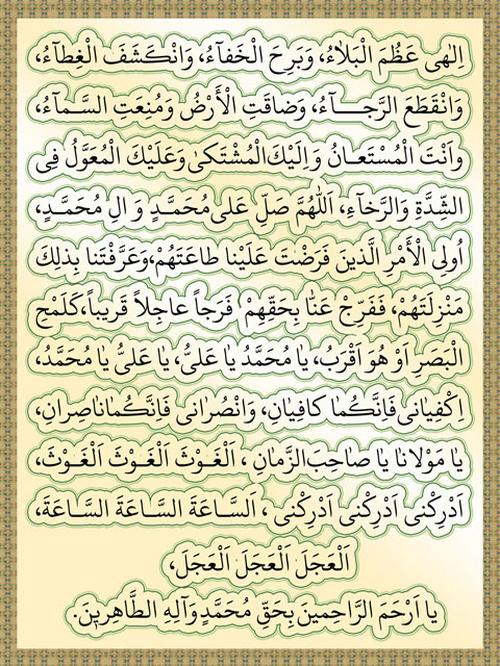 اِلٰهى عَظُمَ الْبَلاءُ، وَبَرِحَ الْخَفآءُ، وَانْكَشَفَ الْغِطآءُ،
وَانْقَطَعَ الرَّجــآءُ، وَضاقَتِ الْأَرْضُ وَمُنِعَتِ السَّمآءُ،
واَنْتَ الْمُسْتَعـانُ وَاِلَيْكَ الْمُشْتَكى وَعَلَيْكَ الْمُعَوَّلُ فِى
الشِّدَّةِ وَالرَّخآءِ، اَللّٰهُمَّ صَلِّ عَلى مُحَمَّدٍ وَ الِ مُحَمَّدٍ،
اُولِى الْأَمْرِ الَّذينَ فَرَضْتَ عَلَيْنا طاعَتَهُمْ،وَعَرَّفْتَنا بِذلِكَ
مَنْزِلَتَهُمْ، فَفَرِّجْ عَنّا بِحَقِّهِمْ فَرَجاً عاجِلاً قَريباً،كَلَمْحِ
الْبَصَرِ اَوْ هُوَ اَقْرَبُ، يا مُحَمَّدُ يا عَلىُّ، يا عَلىُّ يا مُحَمَّدُ،
اِكْفِيانى فَاِنَّكُما كافِيانِ، وَانْصُرانى فَاِنَّكُما ناصِرانِ،
يا مَوْلانا يا صاحِبَ الزَّمانِ ، اَلْغَـوْثَ اَلْغَوْثَ اَلْغَوْثَ،
اَدْرِكْنى اَدْرِكْنى اَدْرِكْنى ، اَلسّـاعَةَ السّـاعَةَ السّـاعَةَ،
اَلْعَجَلَ اَلْعَجَلَ اَلْعَجَلَ،
يا اَرْحَمَ الرَّاحِمينَ بِحَقِّ مُحَمَّدٍ وَآلِهِ الطَّاهِرينَ.